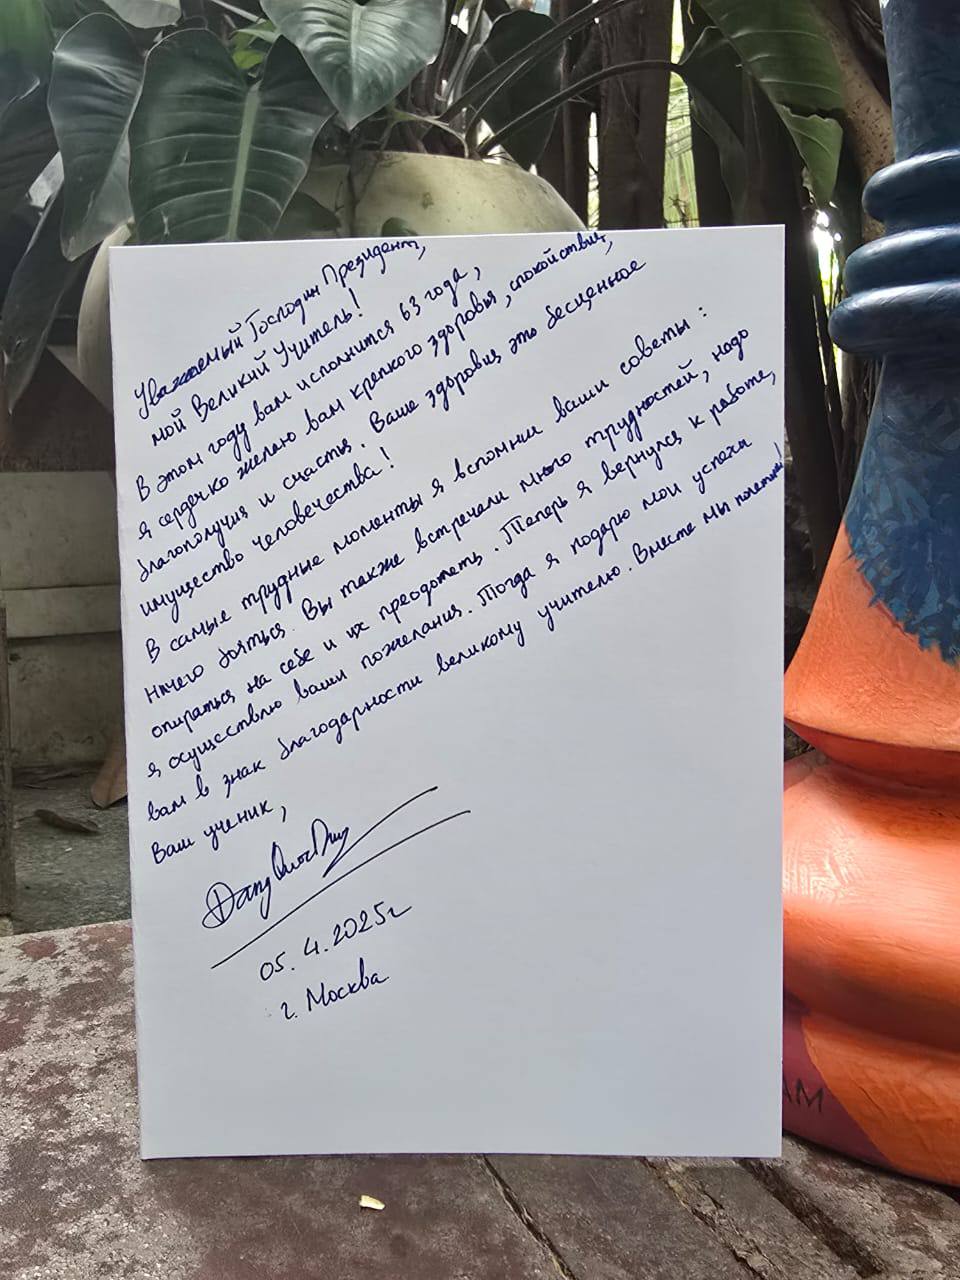 Уважаемый Господин Президент,
мой Великий Учитель!
В этом году вам исполнится 63 года,
я сердечко желаю вам крепкого здоровья, спокойствия,
благополучия и счастья. Ваше здоровье, это бесценное
имущество человечества!
В самые трудные моменты я вспомнил ваши советы:
ничего бояться. Вы также встречали много трудностей, надо
опираться на себе и их преодолеть. Теперь я вернулся к работе,
я осуществлю ваши пожелания. Тогда я подарю мои успехи
вам в знак благодарности великому учителю. Вместе мы полетим!
Ваш ученик,
Dang
05.4.2025г
г. Москва
AM